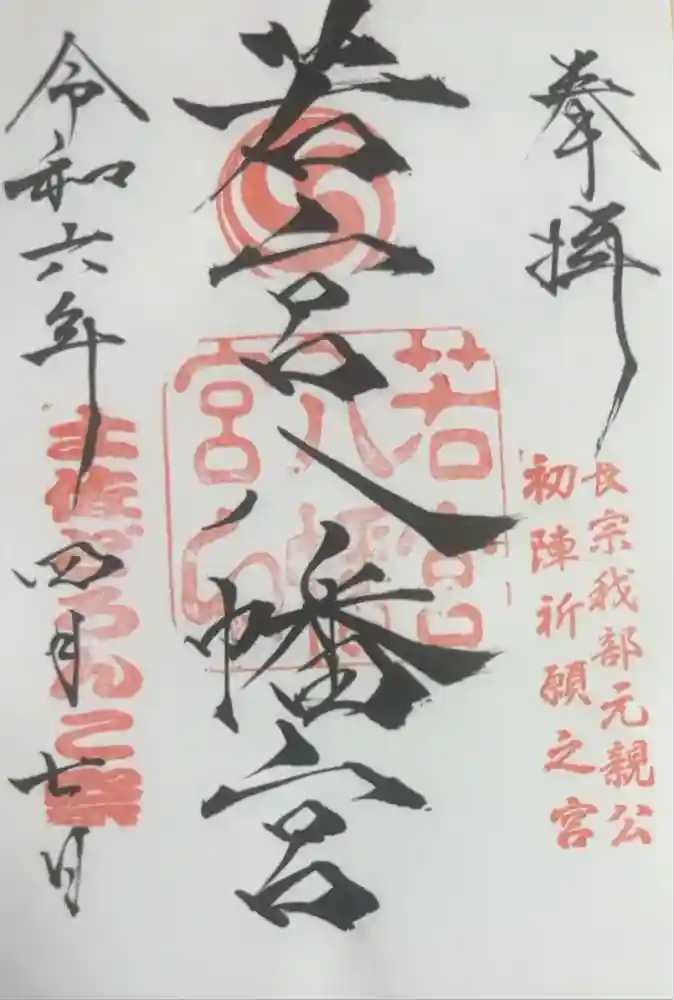 奉拝
長宗我部元親公
初陣祈願之宮
若宮八幡宮
若宮八幡宮
令和六年四月七日
土佐どろんこ祭